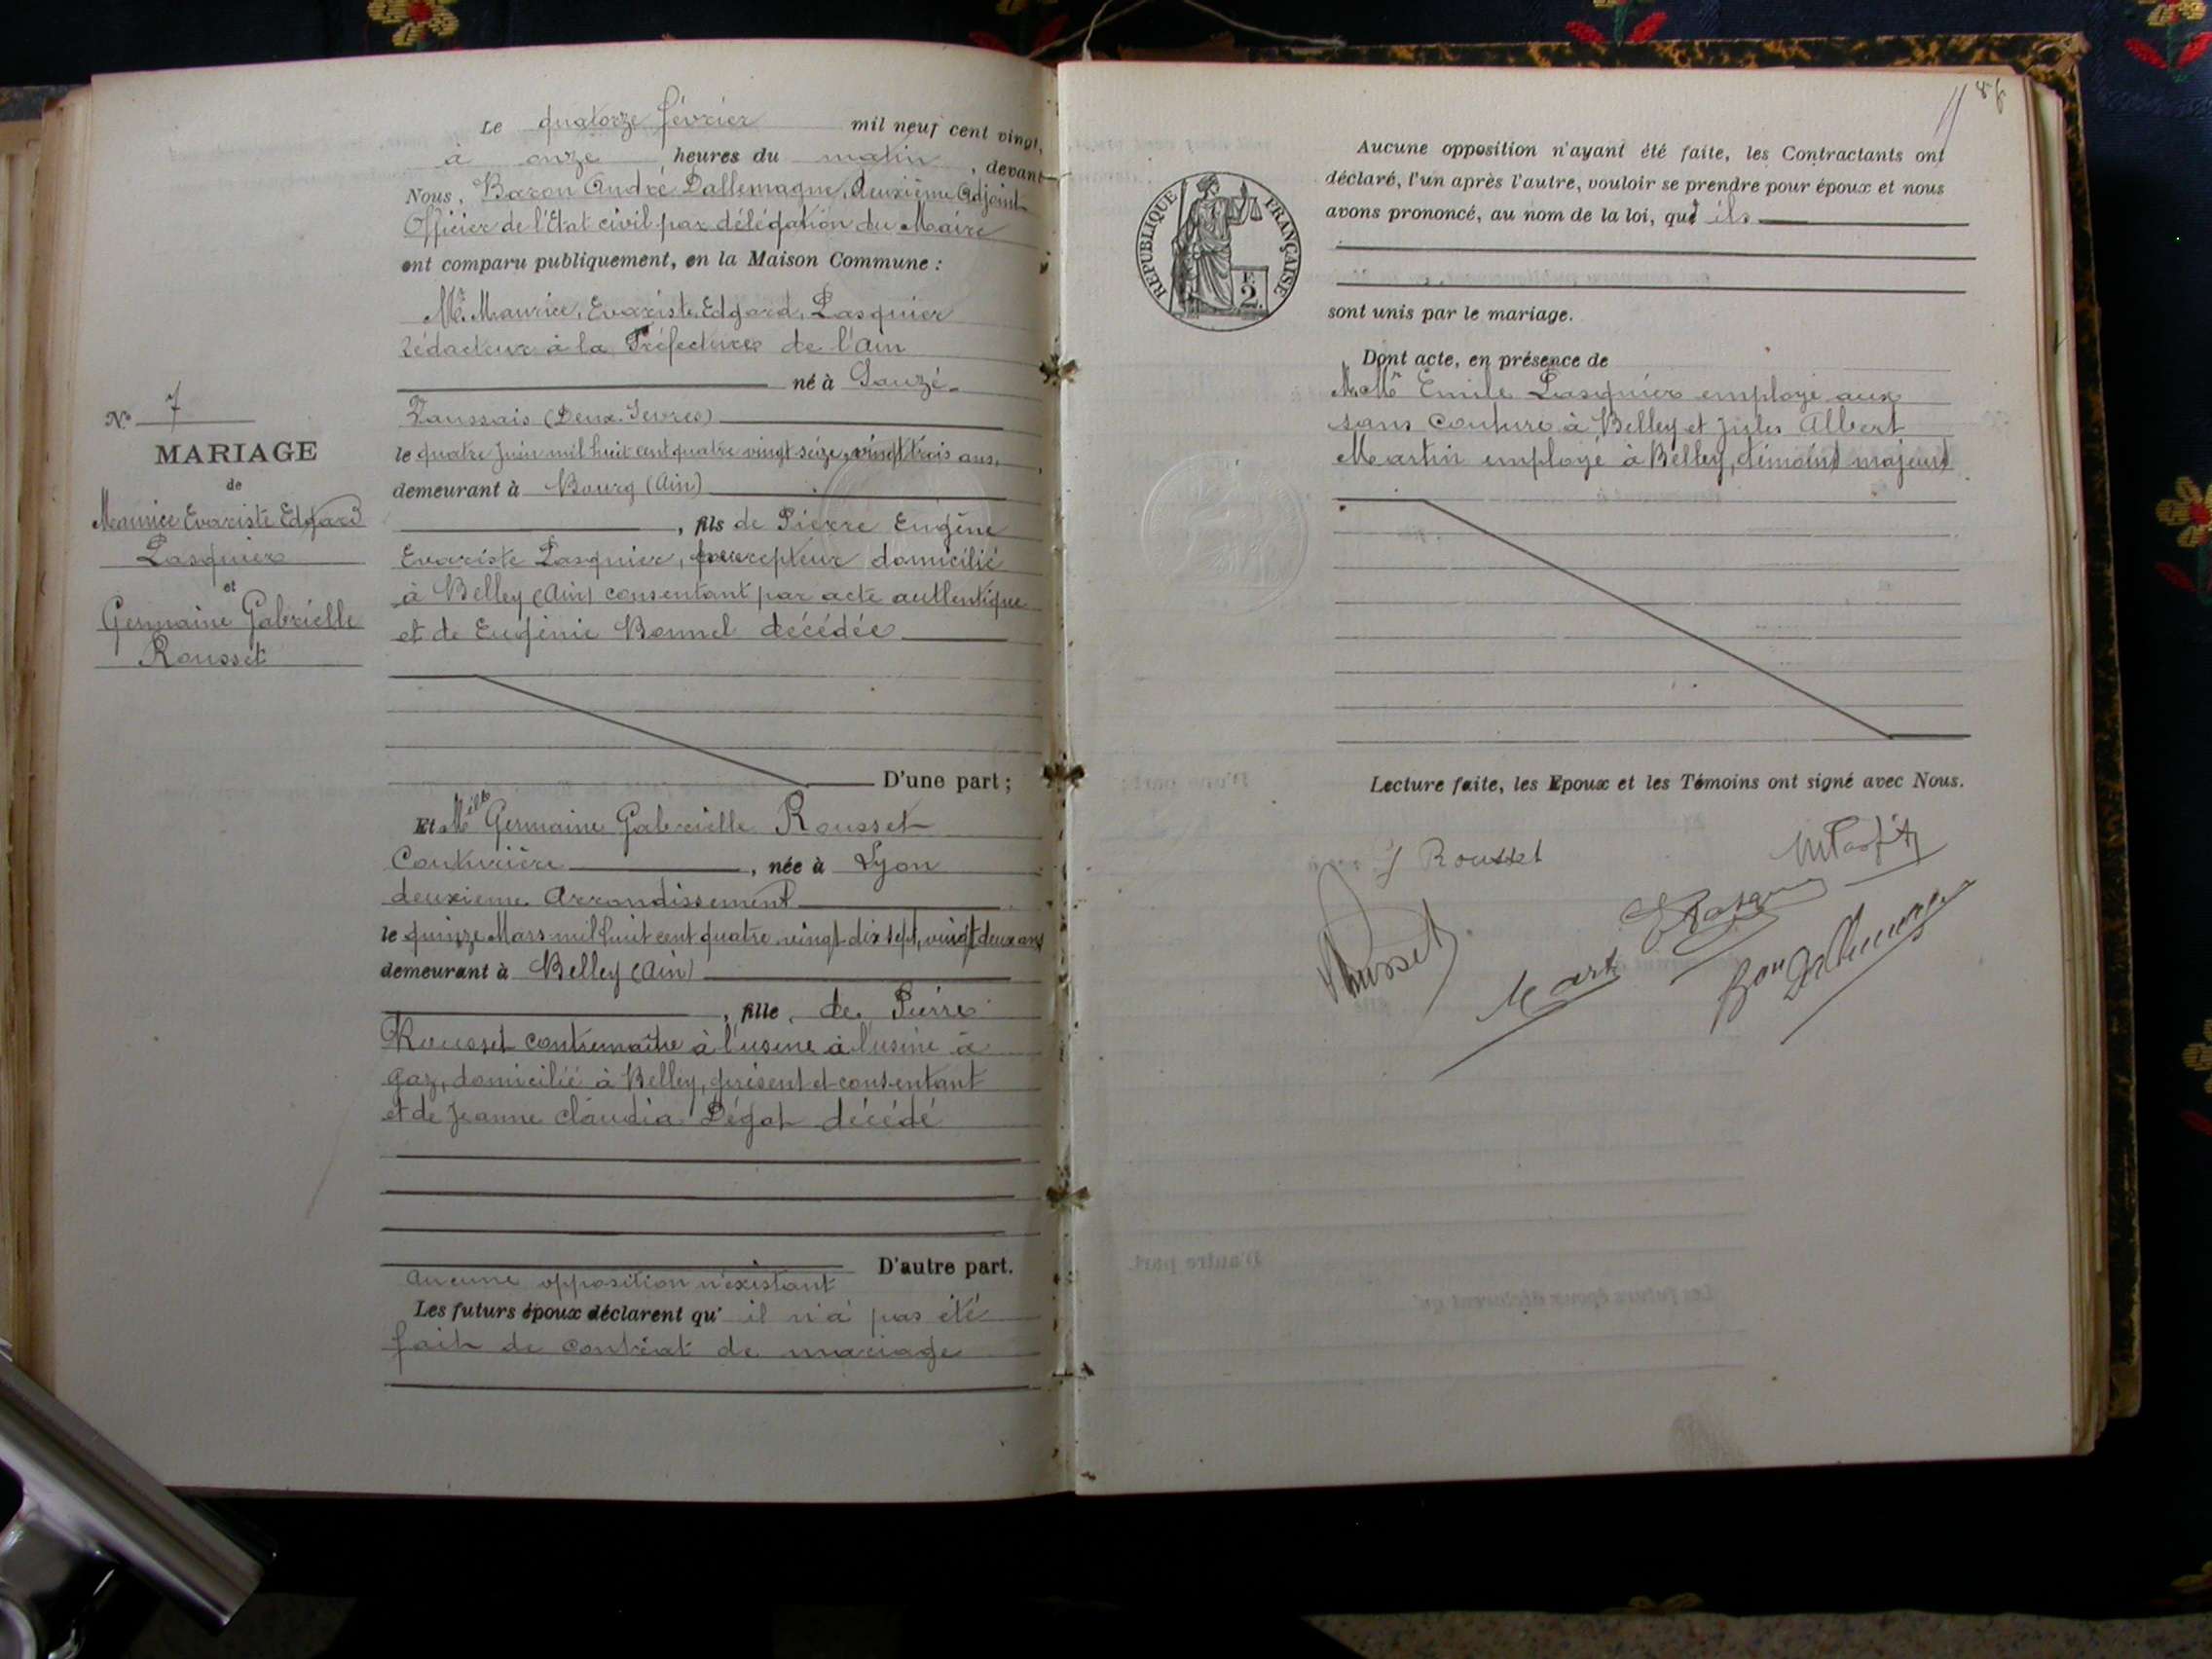 Le quatorze février mil neuf cent vingt,
à onze heures du matin, devant
Nous, Baron André Dallemagne, deuxième Adjoint
Officier de l'Etat civil par délégation du Maire
ont comparu publiquement, en la Maison Commune :
Mr. Maurice, Evariste, Edgard, Pasquier
rédacteur à la Préfecture de l'Ain
né à Sauzé-
Vaussais (Deux-Sevres)
le quatre Juin mil huit cent quatre vingt seize, vingt trois ans,
demeurant à Bourg (Ain)
, fils de Pierre Eugène
Evariste Pasquier, domicilié
à Belley (Ain) consentant par acte authentique
et de Eugénie Bonnel decédée
D'une part ;
N° 7
MARIAGE
de
Maurice Evariste Edgard
Pasquier
et
Germaine Gabrielle
Rousset
Et Melle Germaine Gabrielle Rousset
Couturière, née à Lyon
deuxieme Arrondissement
le quinze Mars mil huit cent quatre vingt dix sept, vingt deux ans
demeurant à Belley (Ain)
, fille, de Pierre
Rousset contremaître à l'usine à l'usine à
gaz, domicilié à Belley, présent et consentant
et de Jeanne Claudia Dégot décédé
D'autre part.
Aucune opposition n'existant
Les futurs époux déclarent qu' il n'a pas été
fait de contrat de mariage
REPUBLIQUE FRANÇAISE
F.
2
Aucune opposition n'ayant été faite, les Contractants ont
déclaré, l'un après l'autre, vouloir se prendre pour époux et nous
avons prononcé, au nom de la loi, qu' ils
sont unis par le mariage.
Dont acte, en présence de
M.Mr Emile Pasquier employé aux
sans Couture à Belley et Jules Albert
Martin employé à Belley, témoins majeurs
Lecture faite, les Epoux et les Témoins ont signé avec Nous.
G Rousset
Rousset
E Pasquier
Bon Dallemagne